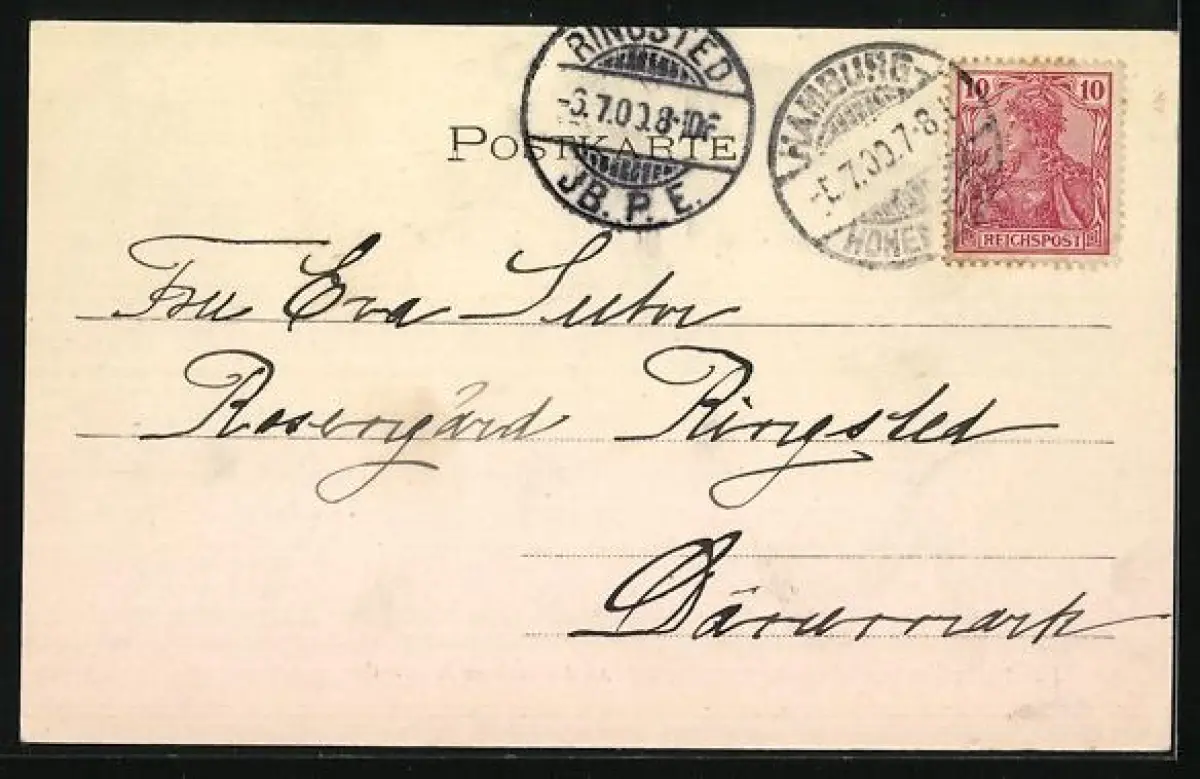 RINGSTED
-6.7.00.8-10F
JB. P. E.
HAMBURG
-5.7.00.7-8
HOHE
10 10
REICHSPOST
POSTKARTE
Fru Eva Sutor
Rosengård Ringsted
Dänemark